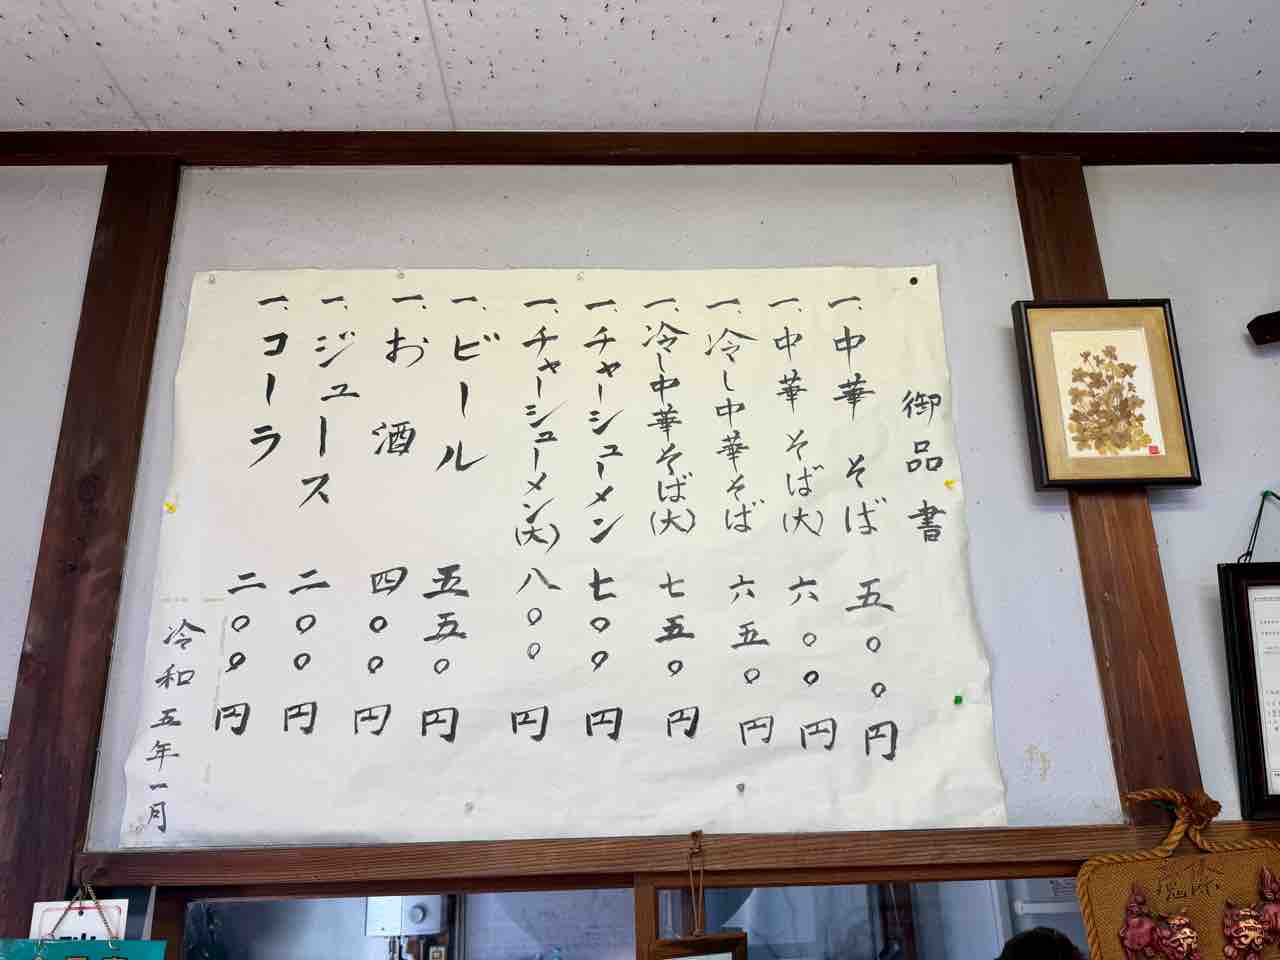 御品書
一、中華そば 五〇〇円
一、中華そば(大) 六〇〇円
一、冷し中華そば 六五〇円
一、冷し中華そば(大) 七五〇円
一、チャーシューメン 七〇〇円
一、チャーシューメン(大) 八〇〇円
一、ビール 五五〇円
一、お酒 四〇〇円
一、ジュース 二〇〇円
一、コーラ 二〇〇円
令和五年一月